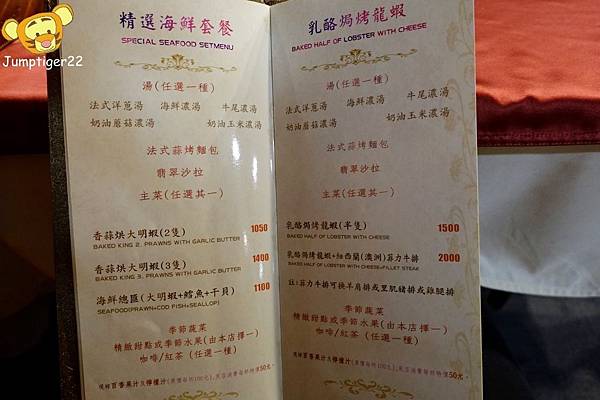 Jumptiger22
精選海鮮套餐
SPECIAL SEAFOOD SETMENU
湯(任選一種)
法式洋蔥湯 海鮮濃湯 牛尾濃湯
奶油蘑菇濃湯 奶油玉米濃湯
法式蒜烤麵包
翡翠沙拉
主菜(任選其一)
香蒜烘大明蝦(2隻) 1050
BAKED KING 2. PRAWNS WITH GARLIC BUTTER
香蒜烘大明蝦(3隻) 1400
BAKED KING 3. PRAWNS WITH GARLIC BUTTER
海鮮總匯(大明蝦+鱈魚+干貝) 1100
SEAFOOD(PRAWN+COD FISH+SEALLOP)
季節蔬菜
精緻甜點或季節水果(由本店擇一)
咖啡/紅茶 (任選一種)
現榨百香果汁及檸檬汁(原價每杯100元),來店消費每杯特價50元。
乳酪焗烤龍蝦
BAKED HALF OF LOBSTER WITH CHEESE
湯(任選一種)
法式洋蔥湯 海鮮濃湯 牛尾濃湯
奶油蘑菇濃湯 奶油玉米濃湯
法式蒜烤麵包
翡翠沙拉
主菜(任選其一)
乳酪焗烤龍蝦(半隻) 1500
BAKED HALF OF LOBSTER WITH CHEESE
乳酪焗烤龍蝦+紐西蘭(澳洲)菲力牛排 2000
BAKED HALF OF LOBSTER WITH CHEESE+FILLET STEAK
註:菲力牛排可換羊肩排或里肌豬排或雞腿排
季節蔬菜
精緻甜點或季節水果(由本店擇一)
咖啡/紅茶 (任選一種)
現榨百香果汁及檸檬汁(原價每杯100元),來店消費每杯特價50元。